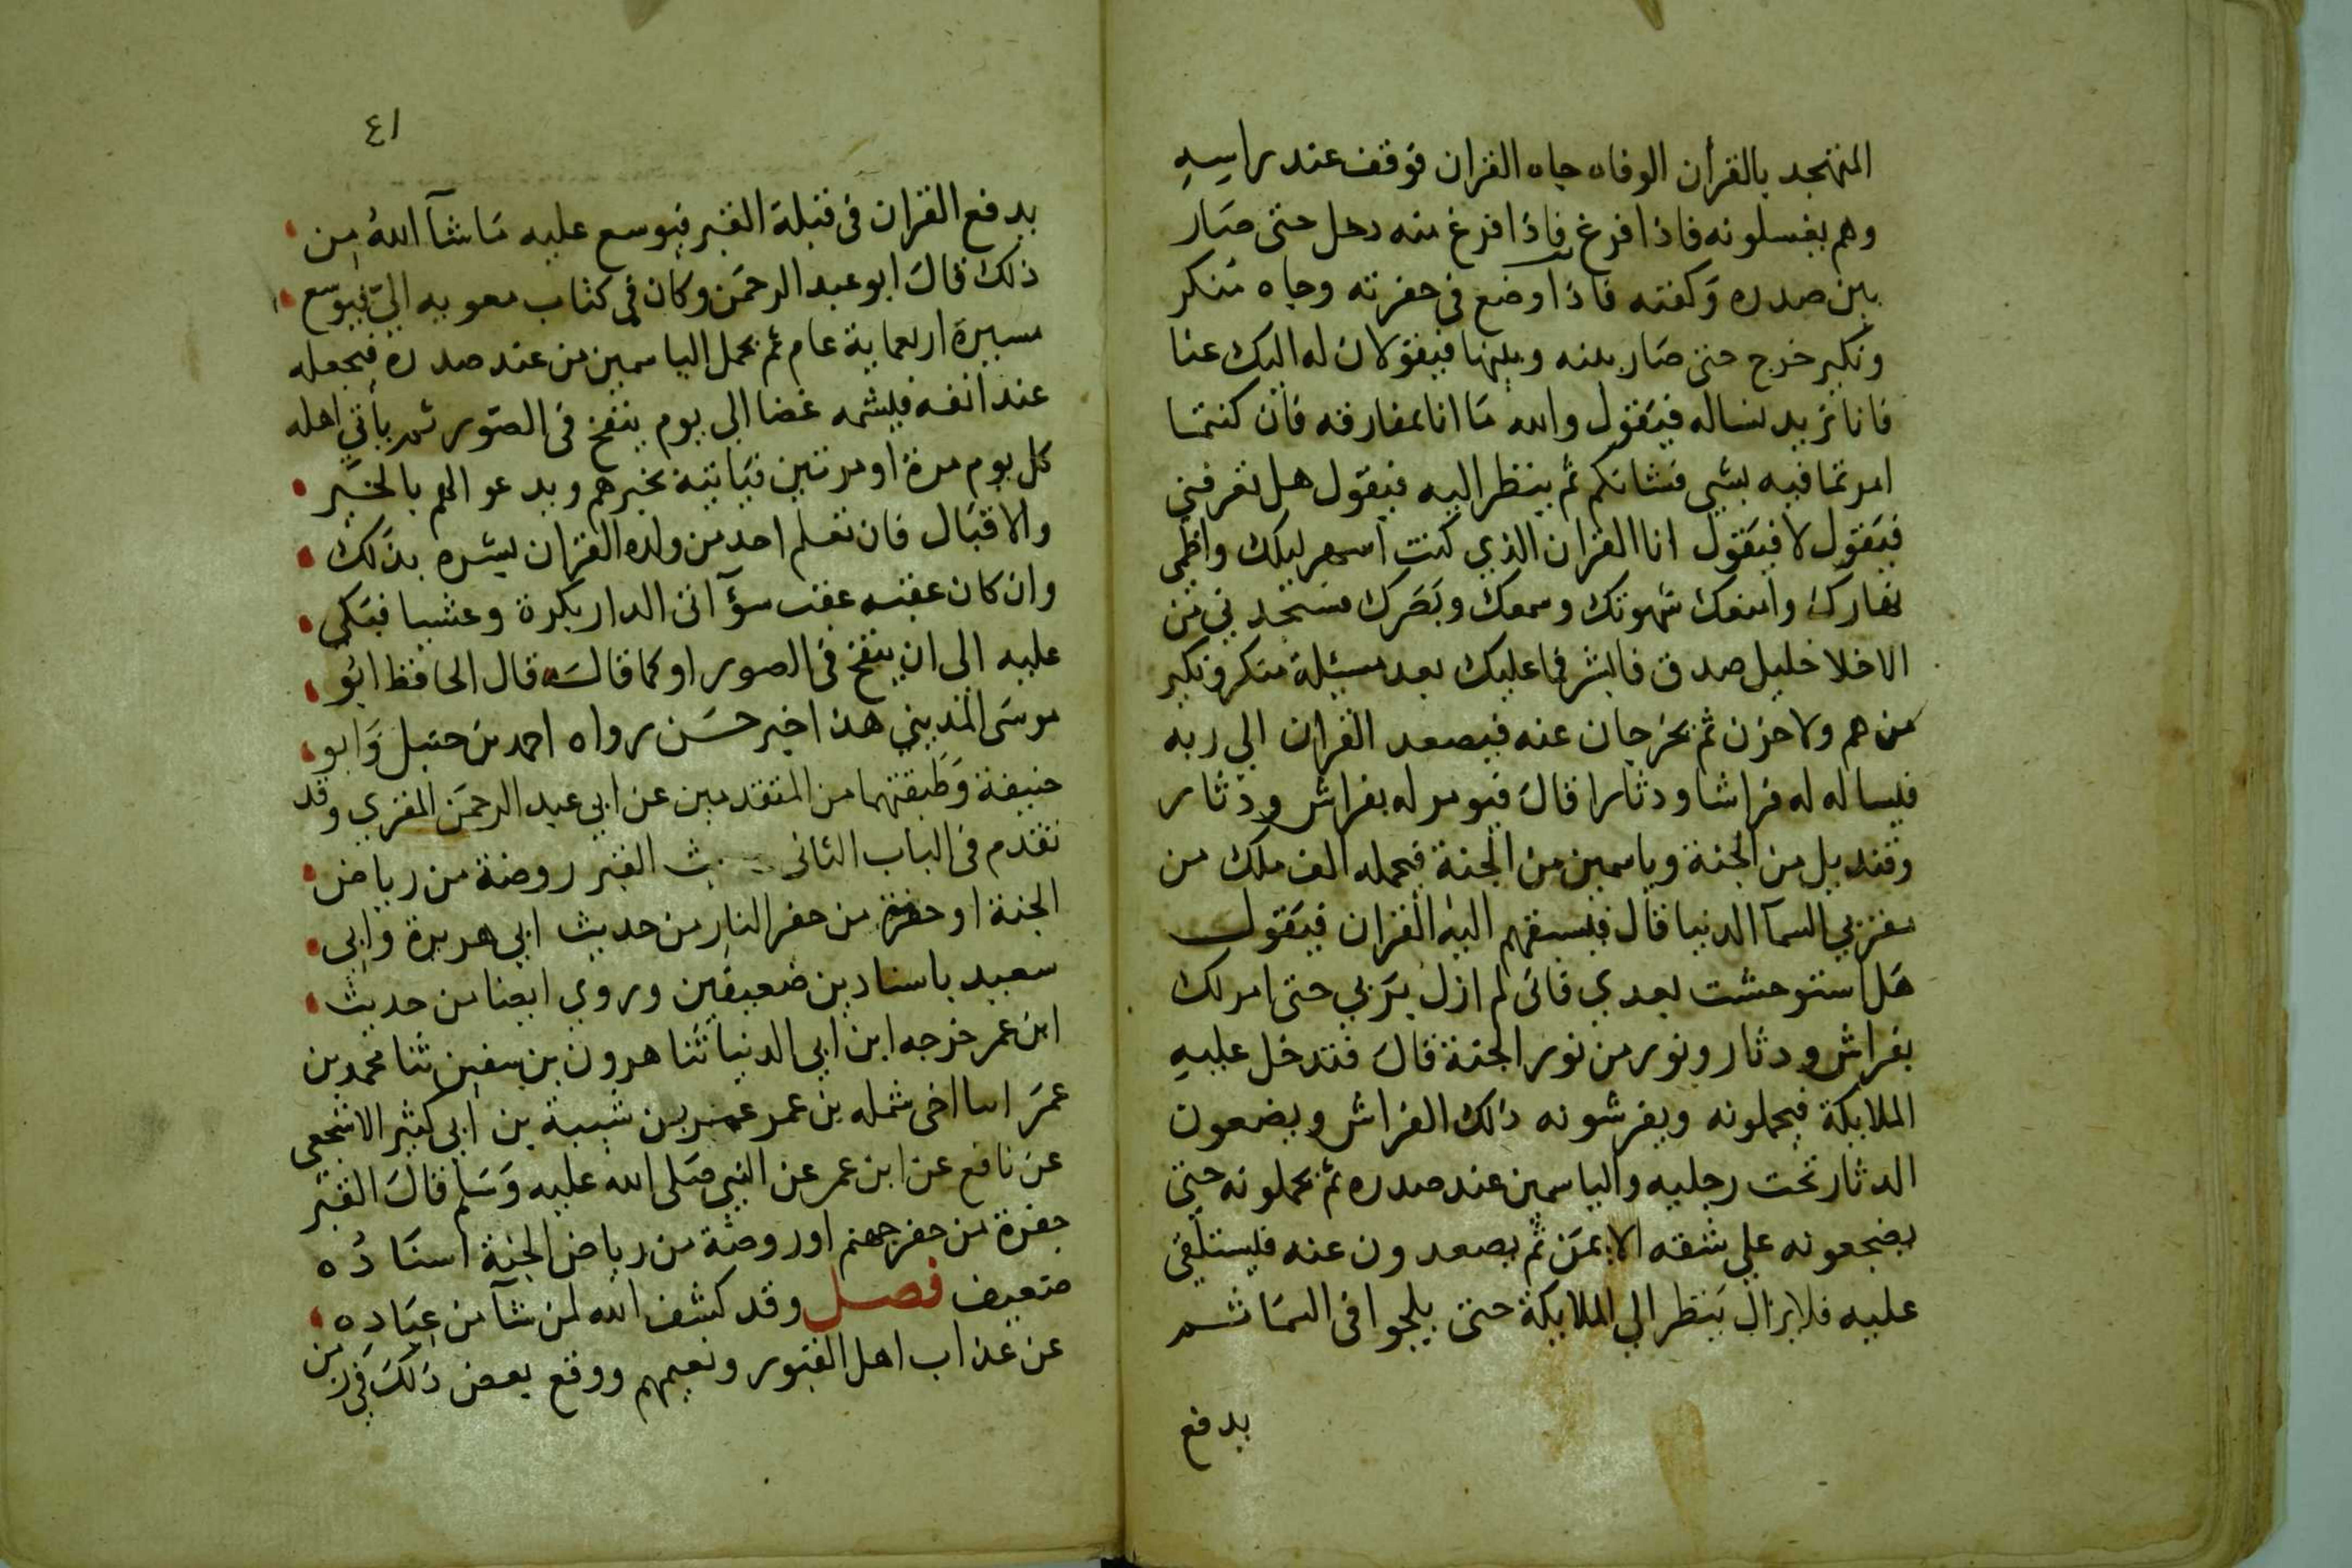 المتهجد بالقرأن الوفاه جاه القران فوقف عند راسه
وهم يغسلونه فاذا فرغ فاذا فرغ منه دخل حتى صار
بين صدره وكفنه فاذا وضع فى حفرته وجاه منكر
ونكير خرج حتى صار بينه وبينها فيقولان له اليك عنا
فانا نريد نساله فيقول والله ما انا بمفارقه فان كنتما
امرتما فيه بشي فشانكم ثم ينظر اليه فيقول هل تعرفني
فيقول لا فيقول انا القران الذي كنت اسهر ليلك واظمي
نهارك وامنعك شهوتك وسمعك وبصرك فستجدني من
الاخلا خليل صدق فابشر فما عليك بعد مسيلة منكر ونكير
من هم ولا حزن ثم يخرجان عنه فيصعد القران الي ربه
فيساله له فراشا ودثارا قال فيومر له بفراش ودثار
وقنديل من الجنة وياسمين من الجنة فيحمله الف ملك من
مقربي السمآ الدنيا قال فيسبقهم اليه القران فيقول
هل استوحشت بعدي فانى لم ازل بربي حتى امر لك
بفراش ودثار ونور من نور الجنة قال فتدخل عليه
الملايكة فيحملونه ويفرشونه ذلك الفراش ويضعون
الدثار تحت رجليه والياسمين عند صدره ثم يحملونه حتى
يضجعونه علي شقه الايمن ثم يصعدون عنه فليستلقى
عليه فلا يزال ينظر الي الملايكة حتى يلجوا فى السما ثم
يدفع
٤١
يدفع القران فى قبلة القبر فيوسع عليه ما شآ الله من
ذلك قال ابو عبد الرحمن وكان فى كتاب معويه الى فيوسع
مسيرة اربعماية عام ثم يحمل الياسمين من عند صدره فيجعله
عند انفه فيشمه غضا الى يوم ينفخ فى الصور ثم يأتى اهله
كل يوم مرة او مرتين فياتيه بخبرهم ويدعو الهم بالخير
والاقبال فان تعلم احد من ولده القران بشره بذلك
وان كان عقبه عقب سؤ آتى الدار بكرة وعشيا فبكى
عليه الى ان ينفخ فى الصور او كما قال قال الحافظ ابو
موسى المديني هذا خبر حسن رواه احمد بن حنبل وابو
خيثمة وطبقتهما من المتقدمين عن ابي عبد الرحمن المقري وقد
تقدم فى الباب الثانى حديث القبر روضة من رياض
الجنة او حفرة من حفر النار من حديث ابي هريرة وابى
سعيد باسنادين ضعيفين وروي ايضا من حديث
ابن عمر خرجه ابن ابي الدنيا ثنا هرون بن سفين ثنا محمد بن
عمر انا اخى شمله بن عمر عن عمر بن شيبة بن ابى كثير الاشجعى
عن نافع عن ابن عمر عن النبي صلى الله عليه وسلم قال القبر
حفرة من حفر جهنم او روضة من رياض الجنة اسناده
ضعيف فصل وقد كشف الله لمن شآ من عباده
عن عذاب اهل القبور ونعيمهم ووقع بعض ذلك فى زمن